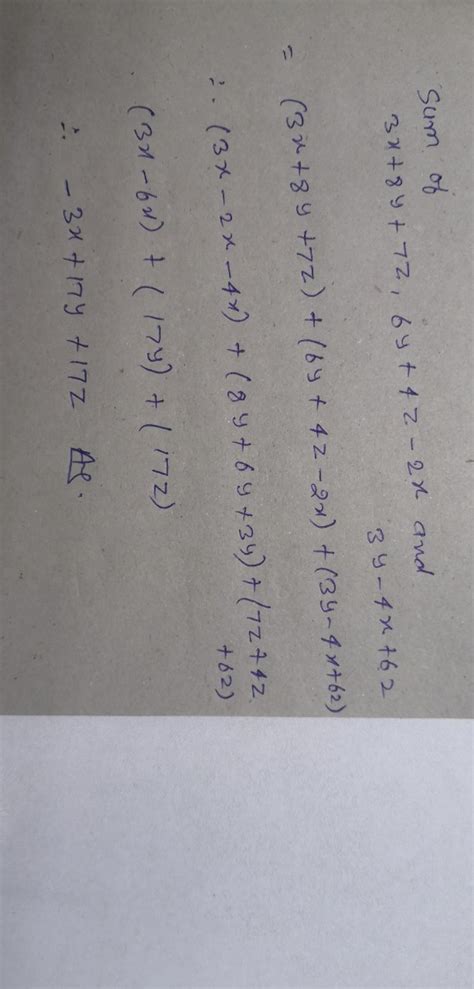 Sum of
3x+8y+7z, 6y+4z-2x and
3y-4x+6z
= (3x+8y+7z)+(6y+4z-2x)+(3y-4x+6z)
∴ (3x-2x-4x)+(8y+6y+3y)+(7z+4z
+6z)
(3x-6x)+(17y)+(17z)
∴ -3x+17y+17z